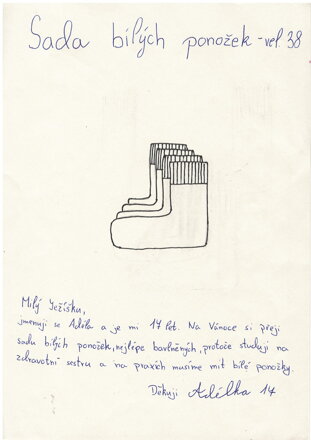 Sada bílých ponožek - vel 38
Milý Ježíšku,
jmenuji se Adéla a je mi 17 let. Na Vánoce si přeji
sadu bílých ponožek, nejlépe bavlněných, protože studuji na
zdravotní sestru a na praxích musíme mít bílé ponožky.
Děkuji Adélka 14